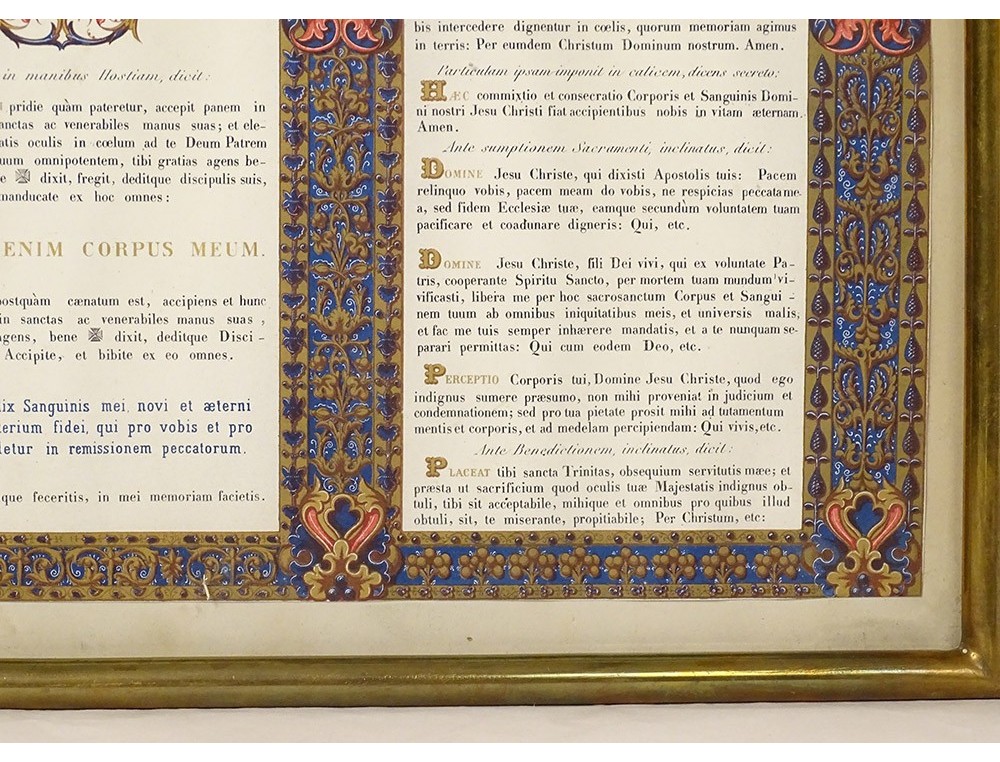 in manibus Hostiam, dicit:
pridie quàm pateretur, accepit panem in
anctas ac venerabiles manus suas; et ele-
atis oculis in cœlum ad te Deum Patrem
uum omnipotentem, tibi gratias agens be-
e ✠ dixit, fregit, deditque discipulis suis,
manducate ex hoc omnes:
ENIM CORPUS MEUM.
ostquàm cænatum est, accipiens et hunc
in sanctas ac venerabiles manus suas,
agens, bene ✠ dixit, deditque Disci-
Accipite, et bibite ex eo omnes.
lix Sanguinis mei, novi et æterni
terium fidei, qui pro vobis et pro
detur in remissionem peccatorum.
que feceritis, in mei memoriam facietis.
bis intercedere dignentur in cœlis, quorum memoriam agimus
in terris: Per eumdem Christum Dominum nostrum. Amen.
Particulam ipsam imponit in calicem, dicens secreto:
HÆC commixtio et consecratio Corporis et Sanguinis Domi-
ni nostri Jesu Christi fiat accipientibus nobis in vitam æternam.
Amen.
Ante sumptionem Sacramenti, inclinatus, dicit:
DOMINE Jesu Christe, qui dixisti Apostolis tuis: Pacem
relinquo vobis, pacem meam do vobis, ne respicias peccata me-
a, sed fidem Ecclesiæ tuæ, eamque secundùm voluntatem tuam
pacificare et coadunare digneris: Qui, etc.
DOMINE Jesu Christe, fili Dei vivi, qui ex voluntate Pa-
tris, cooperante Spiritu Sancto, per mortem tuam mundum vi-
vificasti, libera me per hoc sacrosanctum Corpus et Sangui-
nem tuum ab omnibus iniquitatibus meis, et universis malis,
et fac me tuis semper inhærere mandatis, et a te nunquam se-
parari permittas: Qui cum eodem Deo, etc.
PERCEPTIO Corporis tui, Domine Jesu Christe, quod ego
indignus sumere præsumo, non mihi proveniat in judicium et
condemnationem; sed pro tua pietate prosit mihi ad tutamentum
mentis et corporis, et ad medelam percipiendam: Qui vivis, etc.
Ante Benedictionem, inclinatus, dicit:
PLACEAT tibi sancta Trinitas, obsequium servitutis mææ; et
præsta ut sacrificium quod oculis tuæ Majestatis indignus ob-
tuli, tibi sit acceptabile, mihique et omnibus pro quibus illud
obtuli, sit, te miserante, propitiabile; Per Christum, etc: